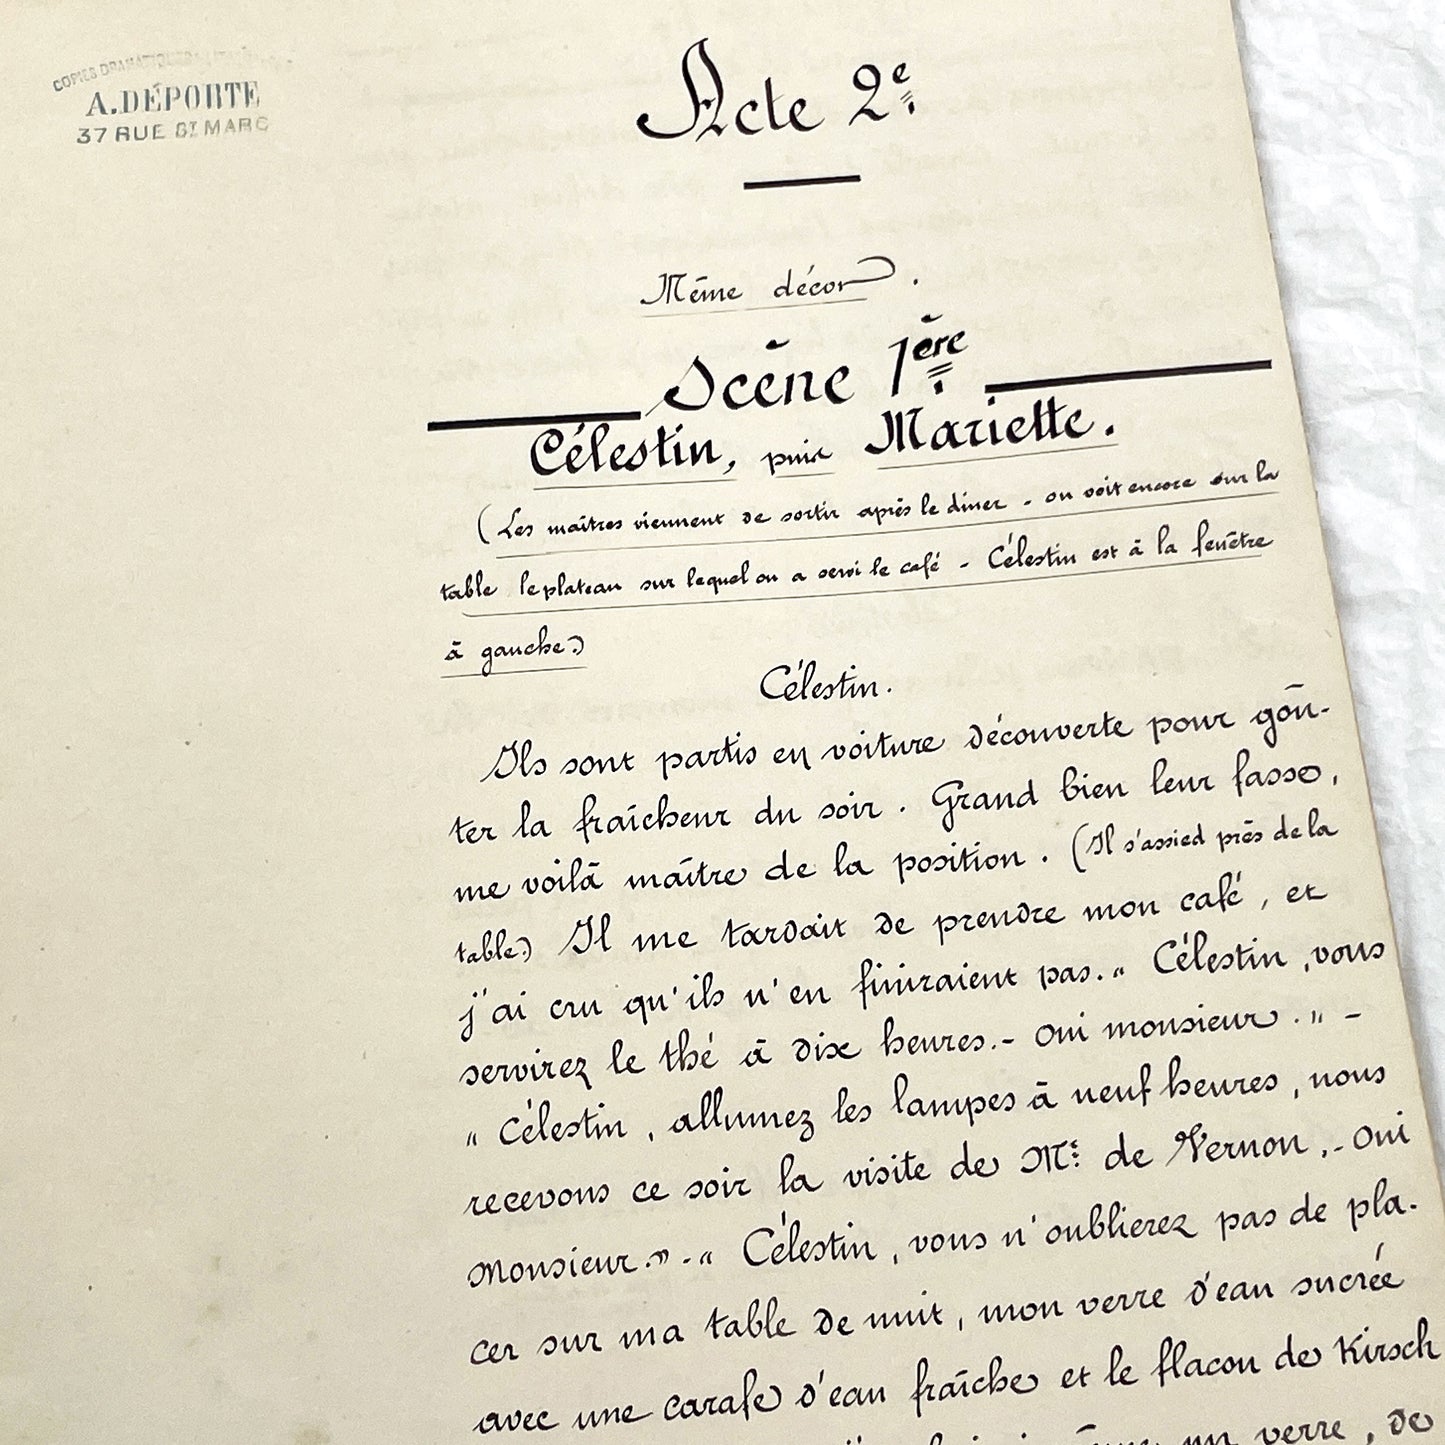 COPIES DRAMATIQUES
A. DÉPORTE
37 RUE ST MARC
Acte 2e
Même décor.
Scène 1ère
Célestin, puis Mariette.
(Les maîtres viennent de sortir après le dîner - on voit encore sur la
table le plateau sur lequel on a servi le café - Célestin est à la fenêtre
à gauche.)
Célestin.
Ils sont partis en voiture découverte pour goû-
ter la fraîcheur du soir. Grand bien leur fasse,
me voilà maître de la position. (Il s'assied près de la
table.) Il me tardait de prendre mon café, et
j'ai cru qu'ils n'en finiraient pas. " Célestin, vous
servirez le thé à dix heures. - Oui monsieur. " -
" Célestin, allumez les lampes à neuf heures, nous
recevons ce soir la visite de Mr de Vernon, - Oui
monsieur. " - " Célestin, vous n'oublierez pas de pla-
cer sur ma table de nuit, mon verre d'eau sucrée
avec une carafe d'eau fraîche et le flacon de Kirsch
un verre, de